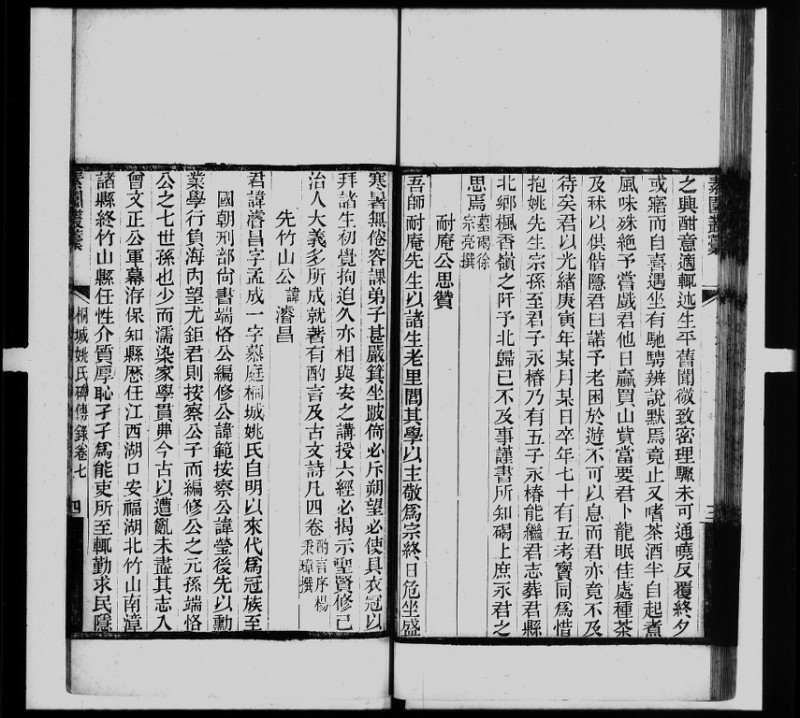 素園叢稾
三
之興酣意適輒述生平舊聞微致密理驟未可通曉反覆終夕
或寤而自喜遇坐有馳騁辨說默焉竟止又嗜茶酒半自起煮
風味殊絶予嘗戲君他日贏買山貲當要君卜龍眠佳處種茶
及秫以供偕隱君曰諾予老困於遊不可以息而君亦竟不及
待矣君以光緒庚寅年某月某日卒年七十有五考寳同爲惜
抱姚先生宗孫至君子永椿乃有五子永椿能繼君志葬君縣
北鄉楓香嶺之阡予北歸已不及事謹書所知碣上庶永君之
思焉墓碣徐
宗亮撰
耐庵公思贊
吾師耐庵先生以諸生老里閭其學以主敬爲宗終日危坐盛
寒暑無倦容課弟子甚嚴箕坐跛倚必斥朔望必使具衣冠以
拜諸生初覺拘迫久亦相與安之講授六經必揭示聖賢修己
治人大義多所成就著有酌言及古文詩凡四卷酌言序楊
秉璋撰
先竹山公諱濬昌
君諱濬昌字孟成一字慕庭桐城姚氏自明以來代爲冠族至
國朝刑部尙書端恪公編修公諱範按察公諱瑩後先以勳
業學行負海內望尤鉅君則按察公子而編修公之元孫端恪
公之七世孫也少而濡染家學貫弗今古以遭亂未盡其志入
曾文正公軍幕洊保知縣歷任江西湖口安福湖北竹山南漳
諸縣終竹山縣任性介質厚恥孑孑爲能吏所至輒勤求民隱
素園叢稾
桐城姚氏碑傳錄卷七
四